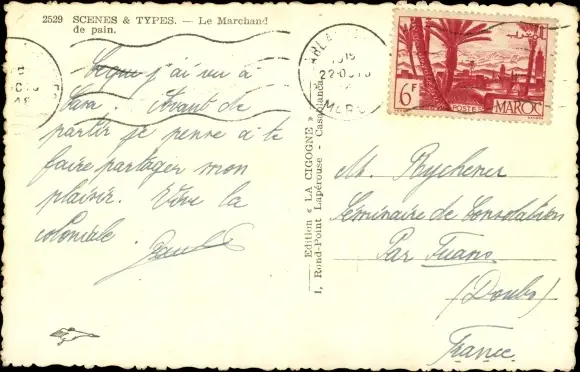 2529 SCENES & TYPES. — Le Marchand
de pain.
Ce que j'ai vu à
Avant de
partir je pense à te
faire partager mon
plaisir. Vive la
coloniale.
Edition « LA CIGOGNE »
1, Rond-Point Lapérouse - Casablanca
22-0
MAROC
6F
POSTES
MAROC
M.
Séminaire de Consolation
Par Fuans
(Doubs)
France.